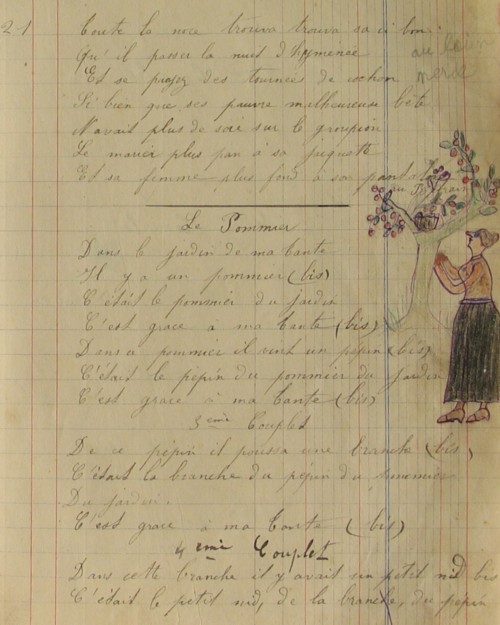 21 Toute la noce trouva trouva sa si bon
Qu'il passer la nuit d'hymenee
Et se payez des tournées de cochon
Si bien que ses pauvre malheureuse bête
N'avait plus de soie sur le groupion
Le marier plus pan a sa jaquette
Et sa femme plus fond a son pantalon
au
Le Pommier
Dans le jardin de ma tante
Il y a un pommier (bis)
C'était le pommier du jardin
C'est grace a ma tante (bis)
Dans ce pommier il vint un pépin (bis)
C'était le pépin du pommier du jardin
C'est grace a ma tante (bis)
3eme Couplet
De ce pépin il poussa une branche (bis)
C'était la branche du pépin du pommier
Du jardin.
C'est grace a ma tante (bis)
4eme Couplet
Dans cette branche il y avait un petit nid bis
C'était le petit nid, de la branche, du pépin